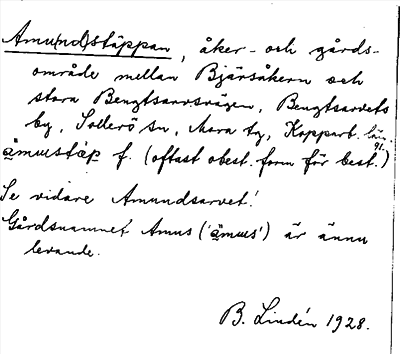 Amu(nd)stäppan, åker- och gårds-
område mellan Bjärsåkern och
stora Bengtsarvsvägen, Bengtsarvets
by, Sollerö sn, Mora tg, Kopparb. län
91.
ämustäp f. (oftast obest. form för best.)
Se vidare Amundsarvet!
Gårdsnamnet Amus ('ämus') är ännu
levande.
B. Lindén 1928.